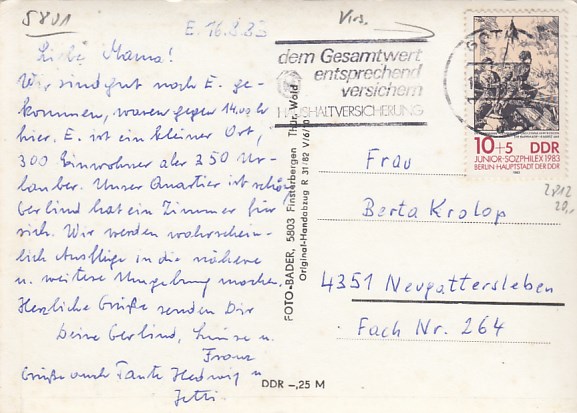 5801
E. 16.9.83
Liebe Mama!
Wir sind gut nach E. ge-
kommen, waren gegen 14.00 Uhr
hier. E. ist ein kleiner Ort,
300 Einwohner aber 250 Ur-
lauber. Unser Quartier ist schön
Gerlind hat ein Zimmer für
sich. Wir werden wahrschein-
lich Ausflüge in die nähere
u. weitere Umgebung machen.
Herzliche Grüße senden Dir
Deine Gerlind, u.
Franz
Grüße auch Tante Hedwig u.
FOTO-BADER, 5803 Finsterbergen Thür. Wald
Original-Handabzug R 31/82 V/6/0
DDR -,25 M
dem Gesamtwert
entsprechend
versichern
HAUSHALTVERSICHERUNG
GOTHA
10+5 DDR
JUNIOR-SOZPHILEX 1983
BERLIN · HAUPTSTADT DER DDR
2812
20,-
Frau
Berta Krolop
4351 Neugattersleben
Fach Nr. 264